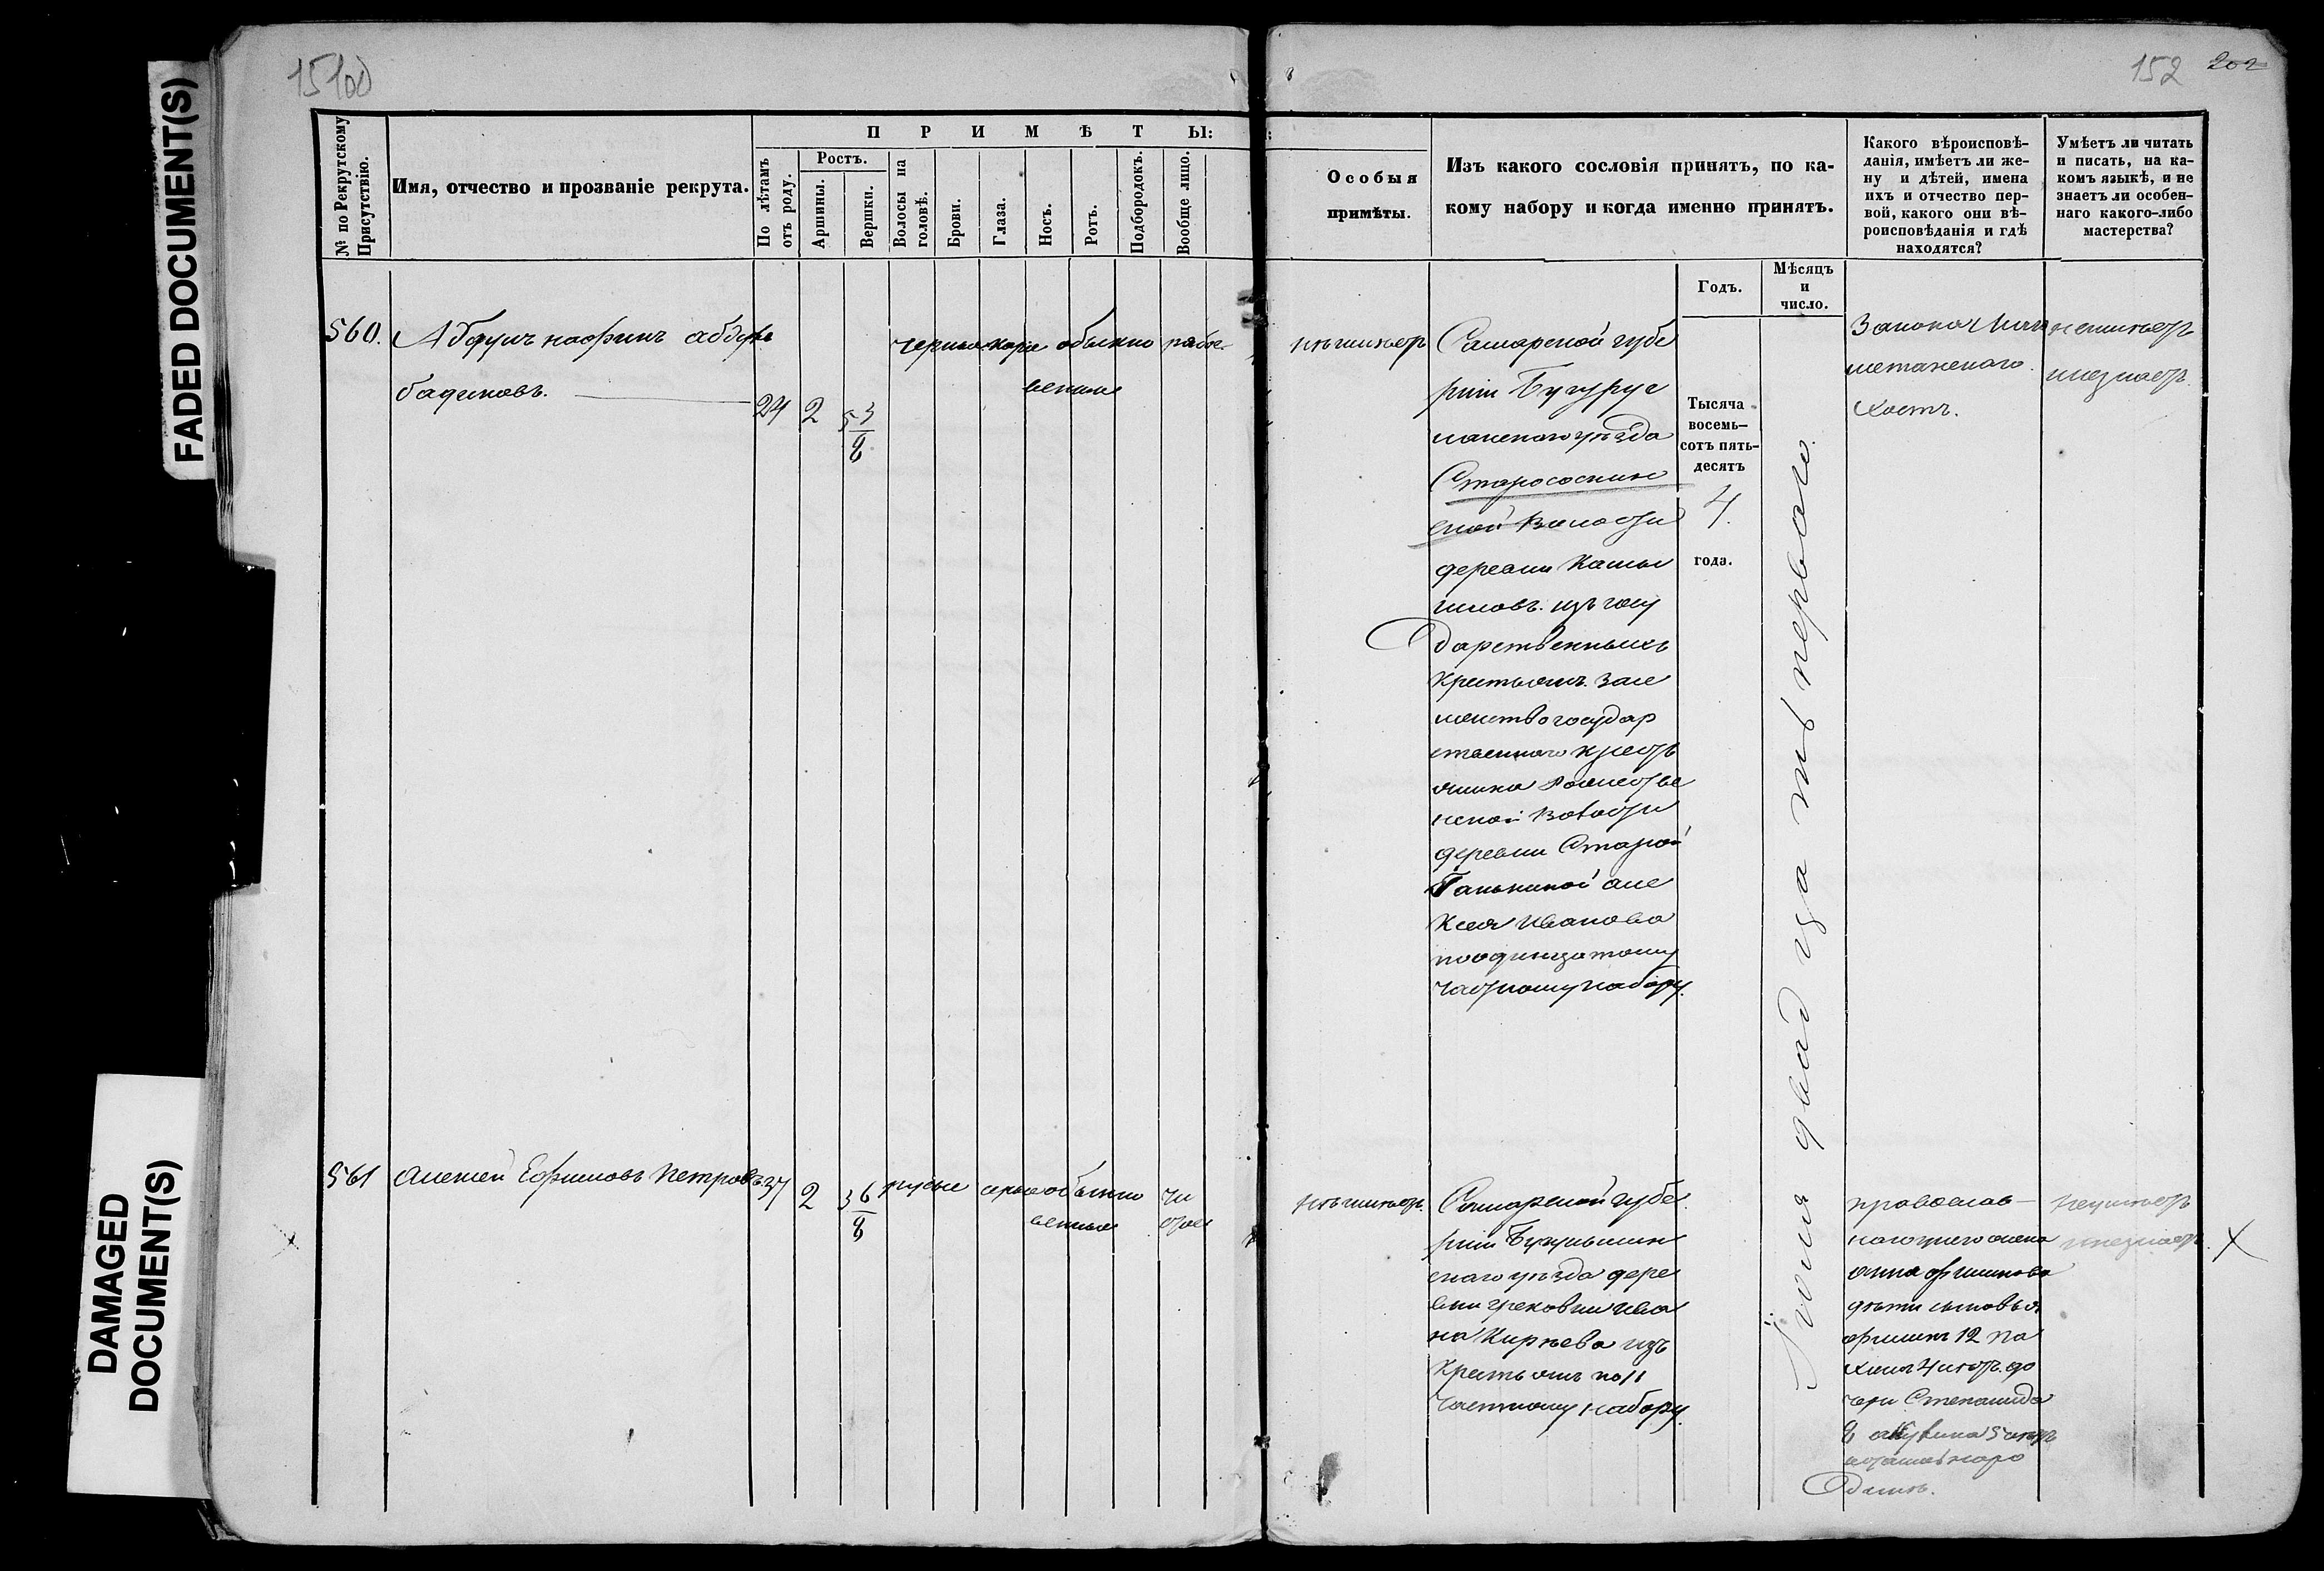 FADED DOCUMENT(S)
DAMAGED
DOCUMENT(S)
152 202
№ по Рекрутскому
Присутствію.
Имя, отчество и прозваніе рекрута.
П Р И М Ѣ Т Ы:
По лѣтамъ
отъ роду.
Ростъ.
Аршины.
Вершки.
Волосы на
головѣ.
Брови.
Глаза.
Носъ.
Ротъ.
Подбородокъ.
Вообще лицо.
Особыя
примѣты.
Изъ какого сословія принятъ, по ка-
кому набору и когда именно принятъ.
Какого вѣроисповѣ-
данія, имѣетъ ли же-
ну и дѣтей, имена
ихъ и отчество пер-
вой, какого они вѣ-
роисповѣданія и гдѣ
находятся?
Умѣетъ ли читать
и писать, на ка-
комъ языкѣ, и не
знаетъ ли особен-
наго какого-либо
мастерства?
Годъ.
Мѣсяцъ
и
число.
560.
24 2 5 3/8
черные карие обыкно
венные
неимѣетъ
Самарской губе
рніи Бугурус
ланскаго уѣзда
Старососнин
ской волости
деревни
изъ госу
дарственныхъ
крестьянъ
государ
ственнаго кресть
янина
волости
деревни Старой
Ганькиной але
ксея Иванова
поодинадцатому
частному набору.
Тысяча
восемь-
сотъ пять-
десятъ
4.
года.
Іюня двадцать перваго.
Закона Маго
метанскаго
холостъ.
неумѣетъ
инезнаетъ.
561
Алексей Ефимовъ Петровъ
37 2 3 6/8
русые серые обыкно
венные
чи
стое
неимѣетъ.
Самарской губе
рніи Бугульмин
скаго уѣзда дере
вни
на Кирѣева изъ
крестьянъ по 11
частному набору.
православ-
наго
анна
дѣти сыновья
ефимъ 12
4 лѣтъ. до
чери Степанида
8 акулина 5 лѣтъ
дамъ.
неумѣетъ
инезнаетъ.